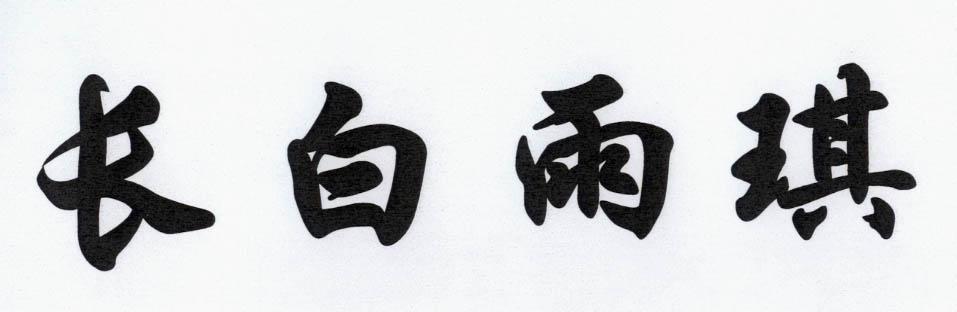 长白雨琪